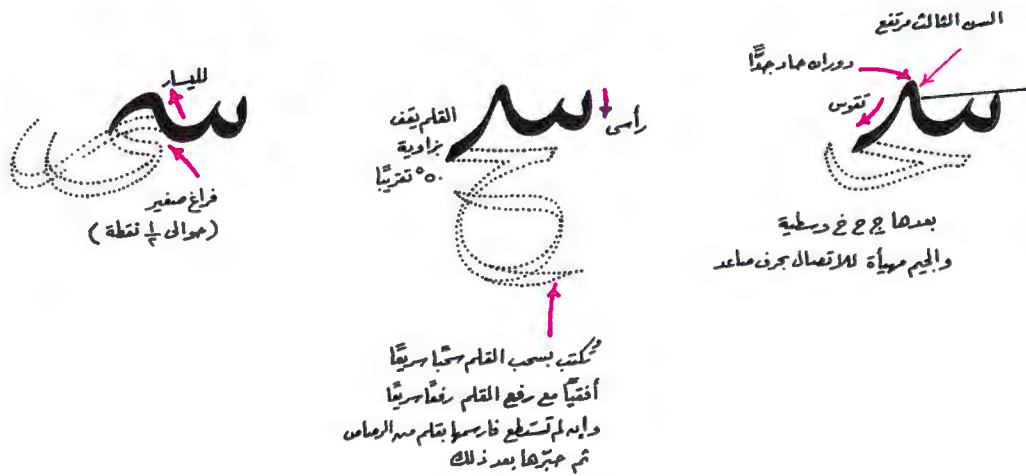 السن الثالث مرتفع
دوران حاد جدًّا
تقوس
بعدها ج ح خ وسطية
والجيم مهيأة للاتصال بحرف صاعد
رأسى
القلم يقف
بزاوية
٥٠° تقريبًا
وتُكتب بسحب القلم سحبًا سريعًا
أفقيًّا مع رفع القلم رفعًا سريعًا
وإن لم تستطع فارسمها بقلم من الرصاص
ثم حبّرها بعد ذلك
لليسار
فراغ صغير
(حوالى ½ نقطة)